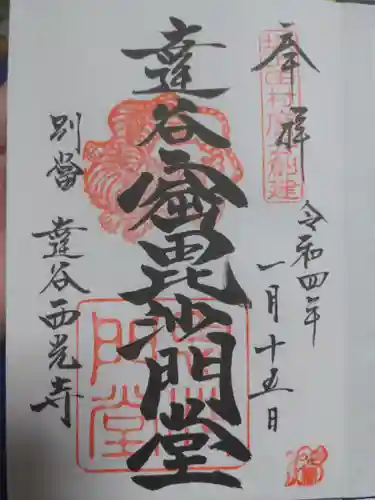 奉拝
令和四年
一月十五日
達谷窟毘沙門堂
別當 達谷西光寺